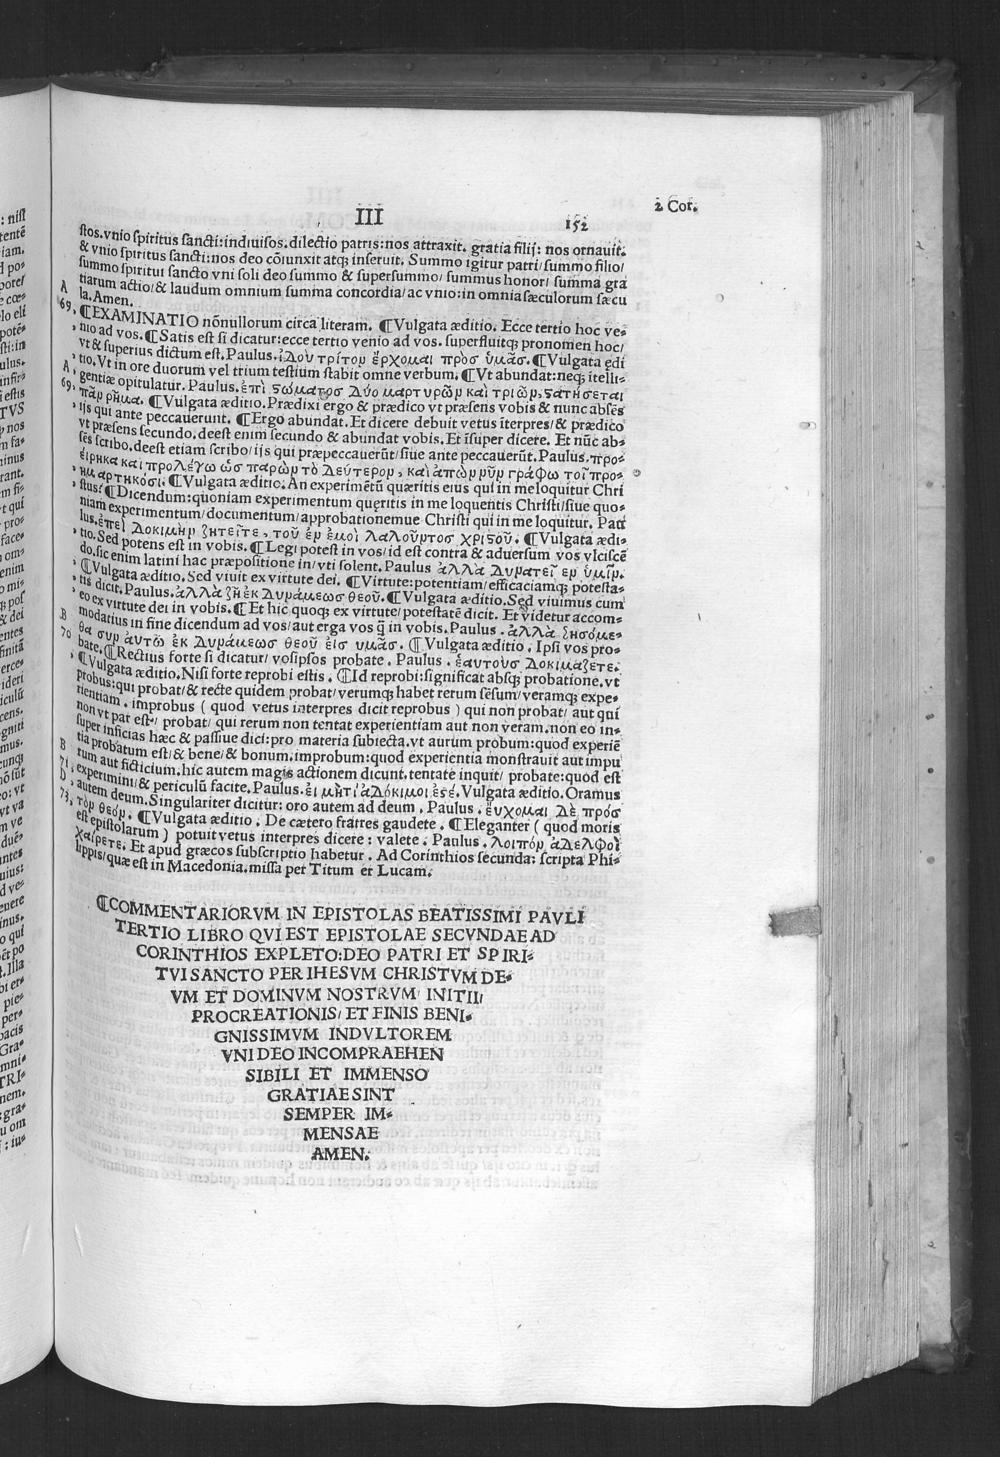 III
152
2 Cor.
stos. vnio spiritus sancti: indiuisos. dilectio patris: nos attraxit. gratia filij: nos ornauit.
& vnio spiritus sancti: nos deo cōiunxit atq; inseruit. Summo igitur patri/ summo filio/
summo spiritui sancto vni soli deo summo & supersummo/ summus honor/ summa gra
tiarum actio/ & laudum omnium summa concordia/ ac vnio: in omnia sæculorum sæcu
la. Amen.
A
69. ¶EXAMINATIO nōnullorum circa literam. ¶Vulgata æditio. Ecce tertio hoc ve-
nio ad vos. ¶Satis est si dicatur: ecce tertio venio ad vos. superfluitq; pronomen hoc/
vt & superius dictum est. Paulus. ἰδου τρίτον ἔρχομαι πρὸσ ὑμᾶσ. ¶Vulgata ędi
A. tio. Vt in ore duorum vel trium testium stabit omne verbum. ¶Vt abundat: neq; itelli-
69. gentiæ opitulatur. Paulus. ἐπὶ ϛώματοσ δύο μαρτυρῶν καὶ τριῶν, ϛατήσεται
πᾶν ρῆμα. ¶Vulgata æditio. Prædixi ergo & prædico vt præsens vobis & nunc absēs
ijs qui ante peccauerunt. ¶Ergo abundat. Et dicere debuit vetus īterpres/ & prædico
vt præsens secundo. deest enim secundo & abundat vobis. Et īsuper dicere. Et nūc ab-
sēs scribo. deest etiam scribo/ ijs qui præpeccauerūt/ siue ante peccauerūt. Paulus. προ-
είρηκα καὶ προλέγω ὡσ παρὼν τὸ δεύτερον, καὶ ἀπὼν νῦν γράφω τοῖ προ-
ημαρτηκόσι. ¶Vulgata æditio. An experimētū quæritis eius qui in me loquitur Chri
stus? ¶Dicendum: quoniam experimentum queritis in me loquentis Christi/ siue quo-
niam experimentum/ documentum/ approbationemue Christi qui in me loquitur. Pau
lus. ἐπεὶ δοκιμὴν ζητεῖτε, τοῦ ἐν ἐμοὶ λαλοῦντοσ χριϛοῦ. ¶Vulgata ædi-
tio. Sed potens est in vobis. ¶Legi potest in vos/ id est contra & aduersum vos vlciscē
do. sic enim latini hac præpositione in/ vti solent. Paulus ἀλλὰ δυνατεῖ ἐν ὑμῖν.
¶Vulgata æditio. Sed viuit ex virtute dei. ¶Virtute: potentiam/ efficaciamq; potesta-
tis dicit. Paulus. ἀλλὰ ζῆ ἐκ δυνάμεωσ θεοῦ. ¶Vulgata æditio. Sed viuimus cum
eo ex virtute dei in vobis. ¶Et hic quoq; ex virtute/ potestatē dicit. Et videtur accom-
B modatius in fine dicendum ad vos/ aut erga vos q̄ in vobis. Paulus. ἀλλὰ ζησόμε-
70 θα συν αυτῶ ἐκ δυνάμεωσ θεοῦ εἰσ υμᾶσ. ¶Vulgata æditio. Ipsi vos pro-
bate. ¶Rectius forte si dicatur/ vosipsos probate. Paulus. ἑαυτοὺσ δοκιμάζετε.
¶Vulgata æditio. Nisi forte reprobi estis. ¶Id reprobi: significat absq; probatione. vt
probus: qui probat/ & recte quidem probat/ verumq; habet rerum sēsum/ veramq; expe-
rientiam. improbus ( quod vetus interpres dicit reprobus ) qui non probat/ aut qui
non vt par est/ probat/ qui rerum non tentat experientiam aut non veram. non eo in-
super inficias hæc & passiue dici: pro materia subiecta. vt aurum probum: quod experiē
B tia probatum est/ & bene/ & bonum. improbum: quod experientia monstrauit aut impu
71. rum aut ficticium. hic autem magis actionem dicunt. tentate inquit/ probate: quod est
D experimini/ & periculū facite. Paulus. εἰ μήτι ἀδόκιμοι ἐϛέ. Vulgata æditio. Oramus
autem deum. Singulariter dicitur: oro autem ad deum. Paulus. ἔυχομαι δὲ πρόσ
73. τὸν θεόν. ¶Vulgata æditio. De cætero fratres gaudete. ¶Eleganter ( quod moris
est epistolarum ) potuit vetus interpres dicere: valete. Paulus. λοιπὸν ἀδελφοὶ
χαίρετε. Et apud græcos subscriptio habetur. Ad Corinthios secunda: scripta Phi-
lippis/ quæ est in Macedonia. missa per Titum et Lucam.
¶COMMENTARIORVM IN EPISTOLAS BEATISSIMI PAVLI
TERTIO LIBRO QVI EST EPISTOLAE SECVNDAE AD
CORINTHIOS EXPLETO: DEO PATRI ET SPIRI-
TVI SANCTO PER IHESVM CHRISTVM DE-
VM ET DOMINVM NOSTRVM/ INITII/
PROCREATIONIS/ ET FINIS BENI-
GNISSIMVM INDVLTOREM
VNI DEO INCOMPRAEHEN
SIBILI ET IMMENSO
GRATIAE SINT
SEMPER IM-
MENSAE
AMEN.